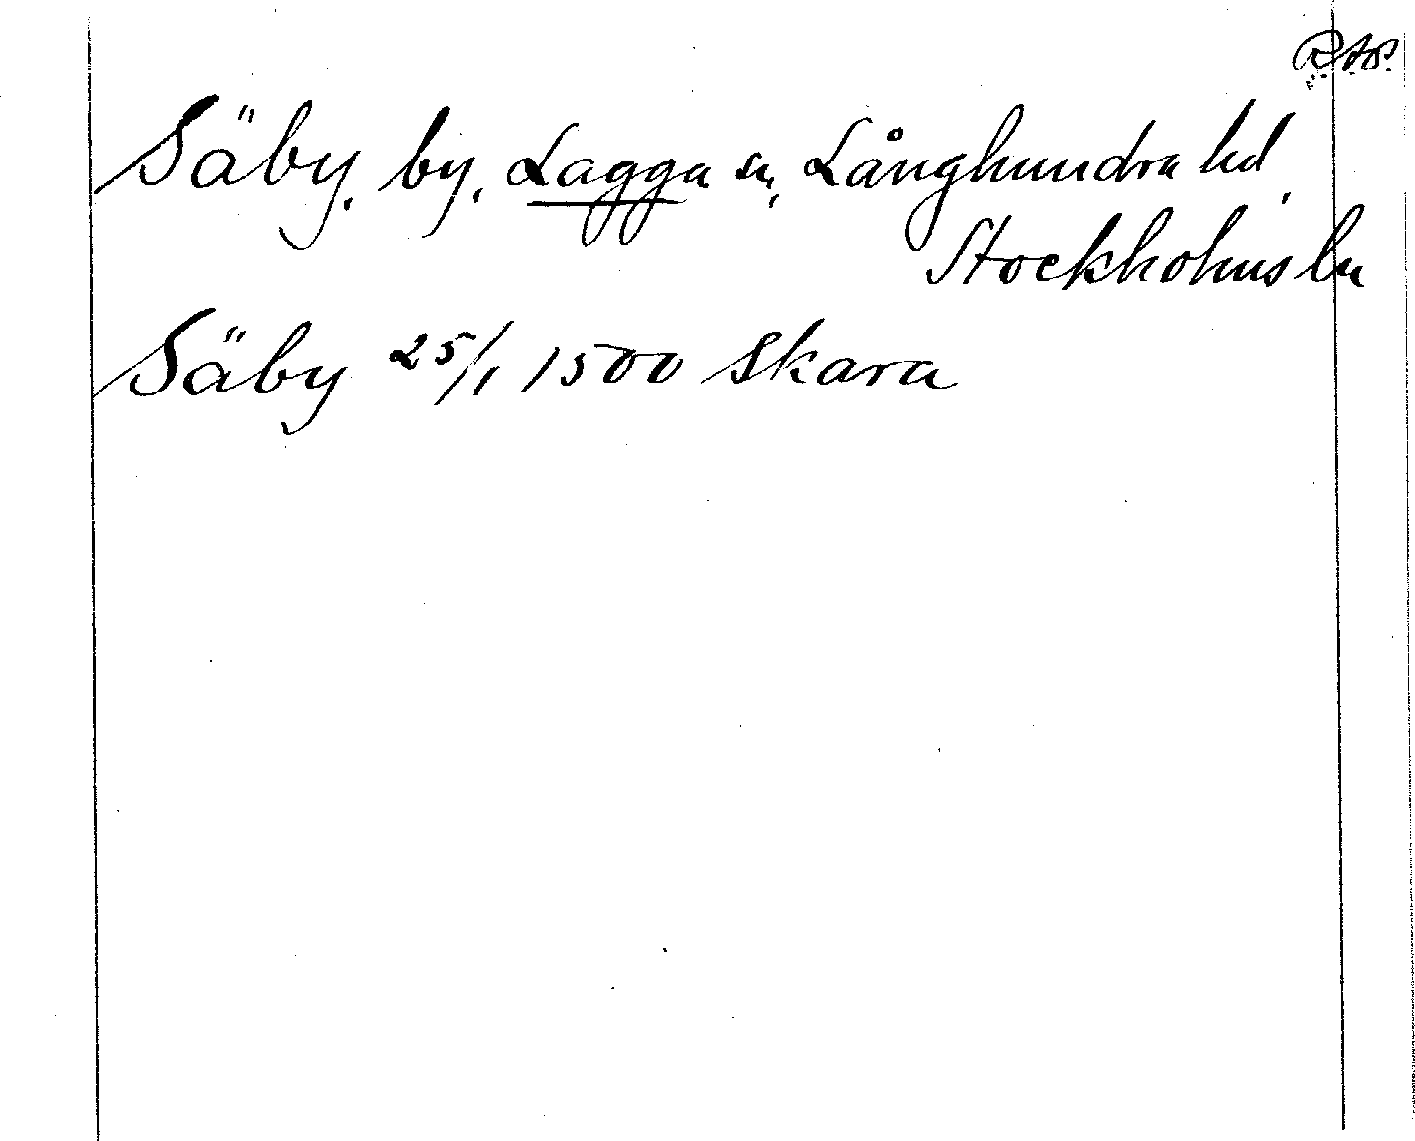 RAP.
Säby, by, Lagga sn, Långhundra hd,
Stockholms ln
Säby 25/1 1500 Skara